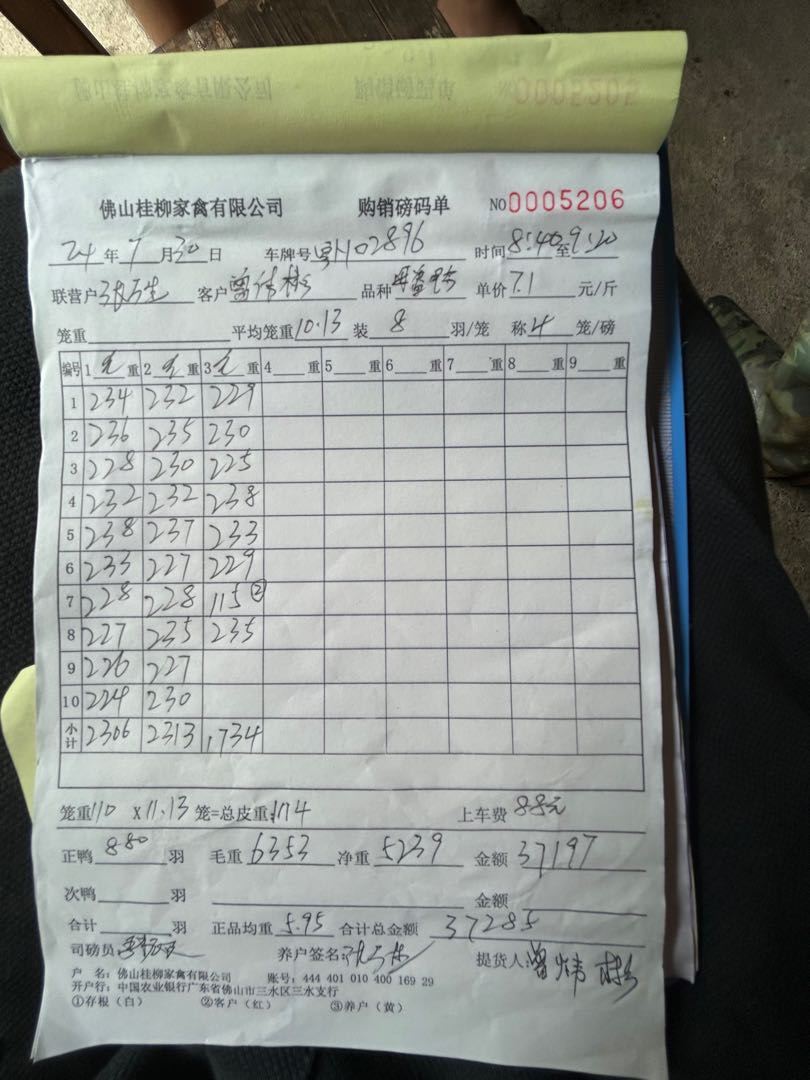 佛山桂柳家禽有限公司 购销磅码单 NO0005206
24年7月30日 车牌号粤H02896 时间8:40至9:20
联营户 客户曾伟彬 品种 单价7.1元/斤
笼重 平均笼重10.13 装8羽/笼 称4笼/磅
编号 1 毛 重 2 毛 重 3 毛 重 4 重 5 重 6 重 7 重 8 重 9 重
1 234 232 229
2 236 235 230
3 228 230 225
4 232 232 238
5 238 237 233
6 233 227 229
7 228 228 115②
8 227 235 235
9 226 227
10 224 230
小计 2306 2313 1734
笼重110 x 10.13 笼=总皮重1114 上车费88元
正鸭880羽 毛重6353 净重5239 金额37197
次鸭 羽 金额
合计 羽 正品均重5.95 合计总金额37285
司磅员 养户签名 提货人:曾炜彬
户 名:佛山桂柳家禽有限公司 账号:444 401 010 400 169 29
开户行:中国农业银行广东省佛山市三水区三水支行
①存根(白) ②客户(红) ③养户(黄)